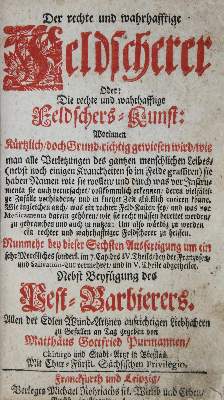 Der rechte und wahrhafftige
Feldscherer
Oder:
Die rechte und wahrhafftige
Feldschers-Kunst:
Worinnen
Kürtzlich/doch Grund-richtig gewiesen wird/wie
man alle Verletzungen des gantzen menschlichen Leibes/
(nebst noch einigen Kranckheiten so im Felde grassiren) sie
haben Namen wie sie wollen/ und durch was vor Instru-
menta sie auch verursachet/ vollkömmlich erkennen/ deren
Zufälle verhindern/ und in kurtzer Zeit glücklich curiren könne.
Wie ingleichen auch/ was ein Feld-Kasten sey/ und was vor
Medicamenta darein gehören/ wie sie recht müssen bereitet werden/
zu gebrauchen und auch zu nutzen/ um also würdig zu werden
ein rechter und wahrhafftiger Feldscherer zu heissen.
Nunmehr bey dieser Sechsten Ausfertigung um ein
sehr Merckliches
und Salivation-Cur vermehret/ und in V. Theile abgetheilet.
Nebst Beyfügung des
Pest-Barbierers.
Allen der Edlen Wund-Artzney aufrichtigen Liebhabern
zu Gefallen an Tag gegeben von
Matthäus Gottfried Purmannen/
Chirurgo und Stadt-Artzt in Breßlau.
Mit Chur-Fürstl. Sächsischen Privilegio.
Franckfurth und Leipzig/
Verlegts Michael Rohrlachs sel. Wittib und Erben/